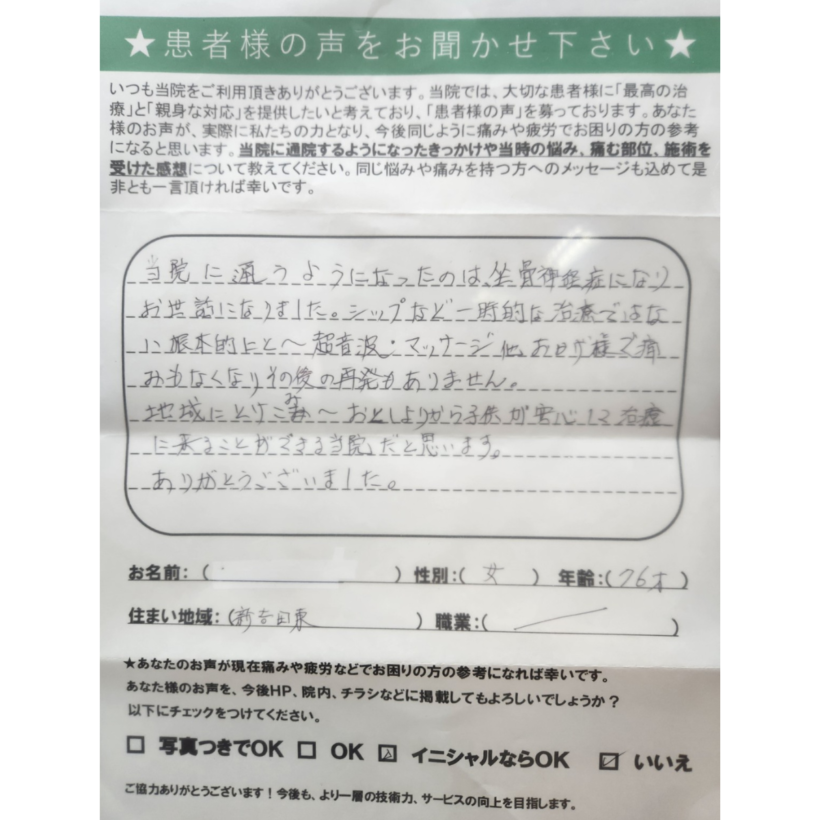 ★患者様の声をお聞かせ下さい★
いつも当院をご利用頂きありがとうございます。当院では、大切な患者様に「最高の治
療」と「親身な対応」を提供したいと考えており、「患者様の声」を募っております。あなた
様のお声が、実際に私たちの力となり、今後同じように痛みや疲労でお困りの方の参考
になると思います。当院に通院するようになったきっかけや当時の悩み、痛む部位、施術を
受けた感想について教えてください。同じ悩みや痛みを持つ方へのメッセージも込めて是
非とも一言頂ければ幸いです。
当院に通うようになったのは、坐骨神経症になり
お世話になりました。シップなど一時的な治療ではな
い根本的にと〜超音波・マッサージ他、おかげ様で痛
みもなくなりその後の再発もありません。
地域にとけこみ〜おとしよりから子供が安心して治療
に来ることができる当院、だと思います。
ありがとうございました。
お名前:( ) 性別:( 女 ) 年齢:(76才)
住まい地域:(新吉田東 ) 職業:( )
★あなたのお声が現在痛みや疲労などでお困りの方の参考になれば幸いです。
あなた様のお声を、今後HP、院内、チラシなどに掲載してもよろしいでしょうか?
以下にチェックをつけてください。
□ 写真つきでOK □ OK ☑ イニシャルならOK ☑ いいえ
ご協力ありがとうございます!今後も、より一層の技術力、サービスの向上を目指します。